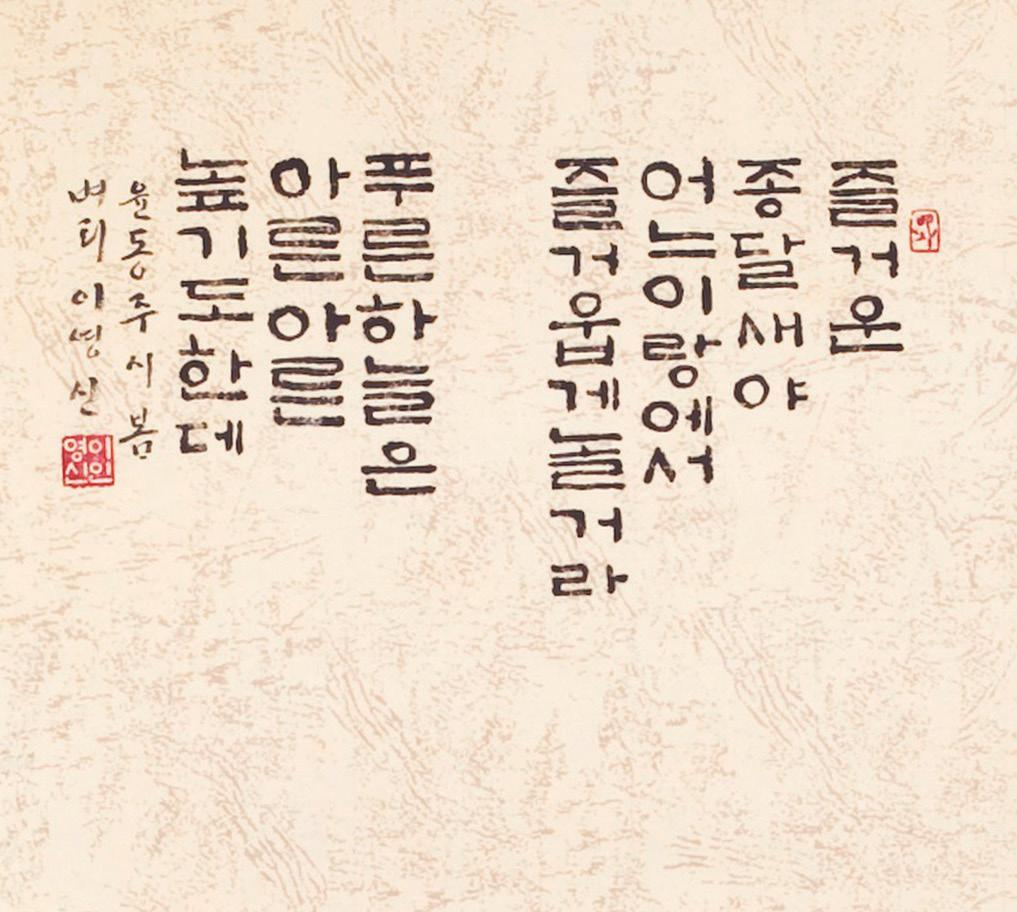 즐거운
종달새야
어느이랑에서
즐거웁게놀거라
푸른하늘은
아른아른
높기도한데
윤동주시봄
이영신
이영신인